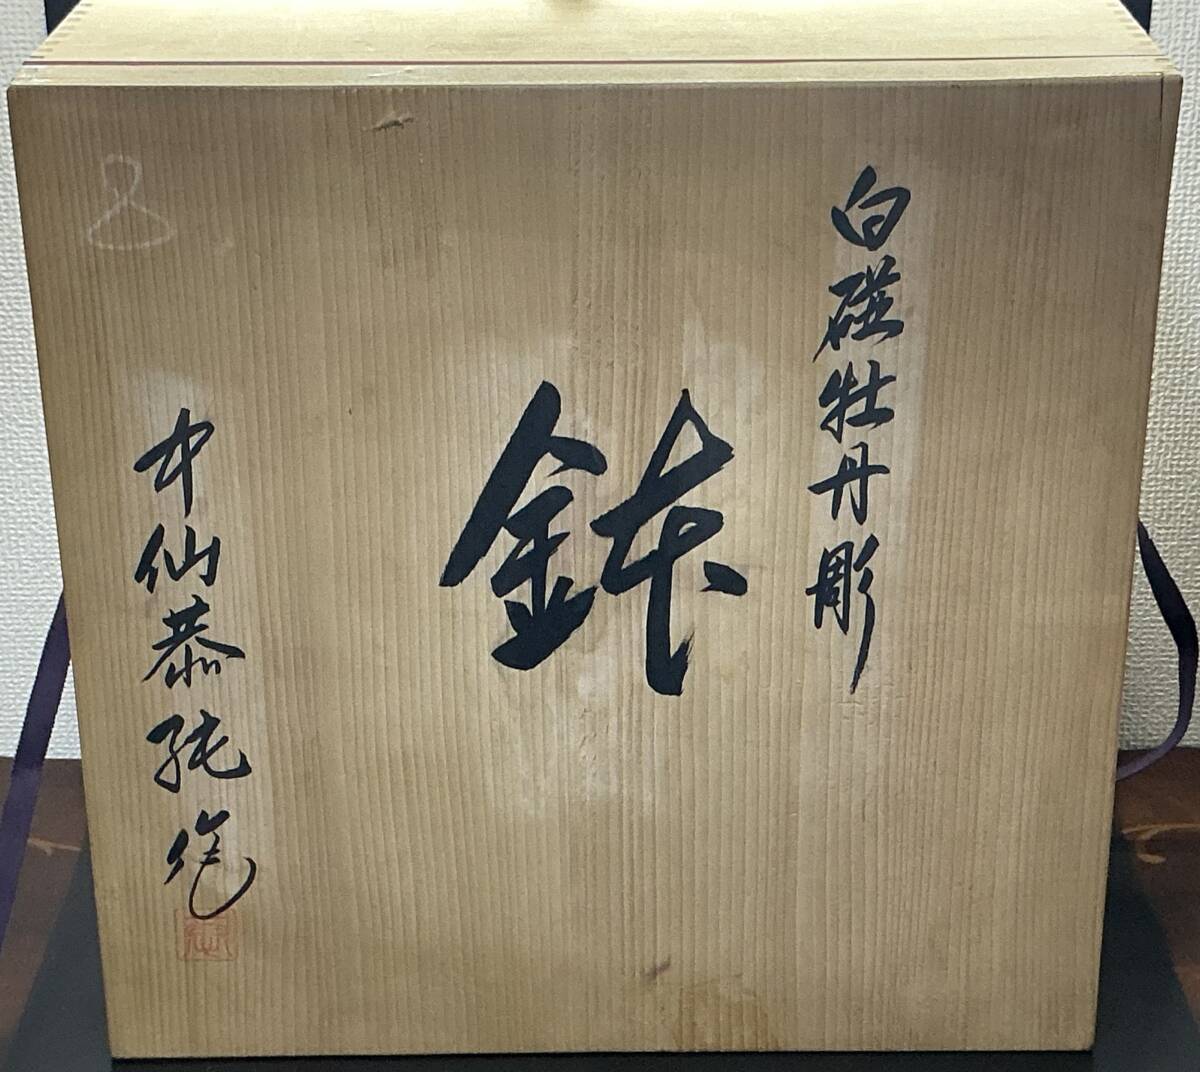 白磁牡丹彫
鉢
中仙恭純作